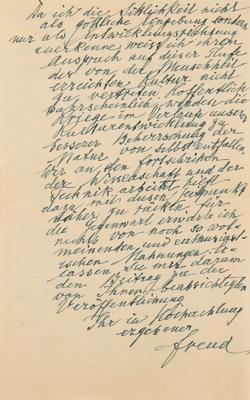 Da ich die Sittlichkeit nicht
als göttliche Eingebung sondern
nur als Entwicklungs
anerkenne, weiss ich ihren
Anspruch auf dieser Stufe
der von der Menschheit
erreichten Kultur nicht
zu vertreten. Hoffentlich
wahrscheinlich werden die
Kriege im Verlauf unserer
Kulturentwicklung zu
besserer Beherrschung der
Natur von selbst entfallen
Wir an den Fortschritten
der Wissenschaft und der
Technik arbeiten
dazu mit diesen Zeitpunkt
näher zu rücken. Für
die Gegenwart erwarte ich
nichts von noch so wohl
meinenden und
Mahnungen
lassen Sie mich darum
den Beitrag zu der
von Ihnen beabsichtigten
Veröffentlichung
Ihr in Hochachtung
ergebener
Freud